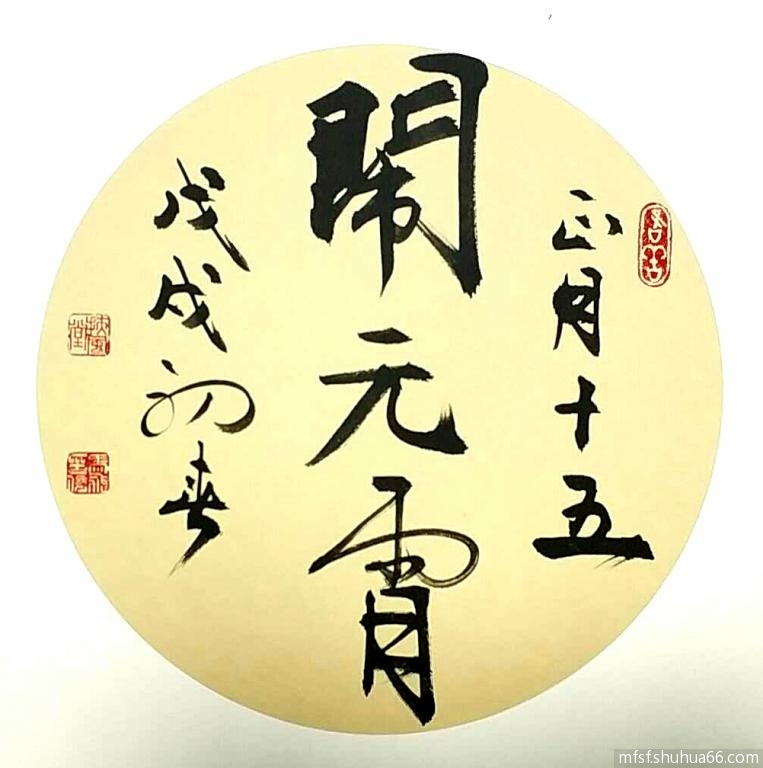 正月十五
鬧元宵
戊戌初春
mfsfshuhua66.com